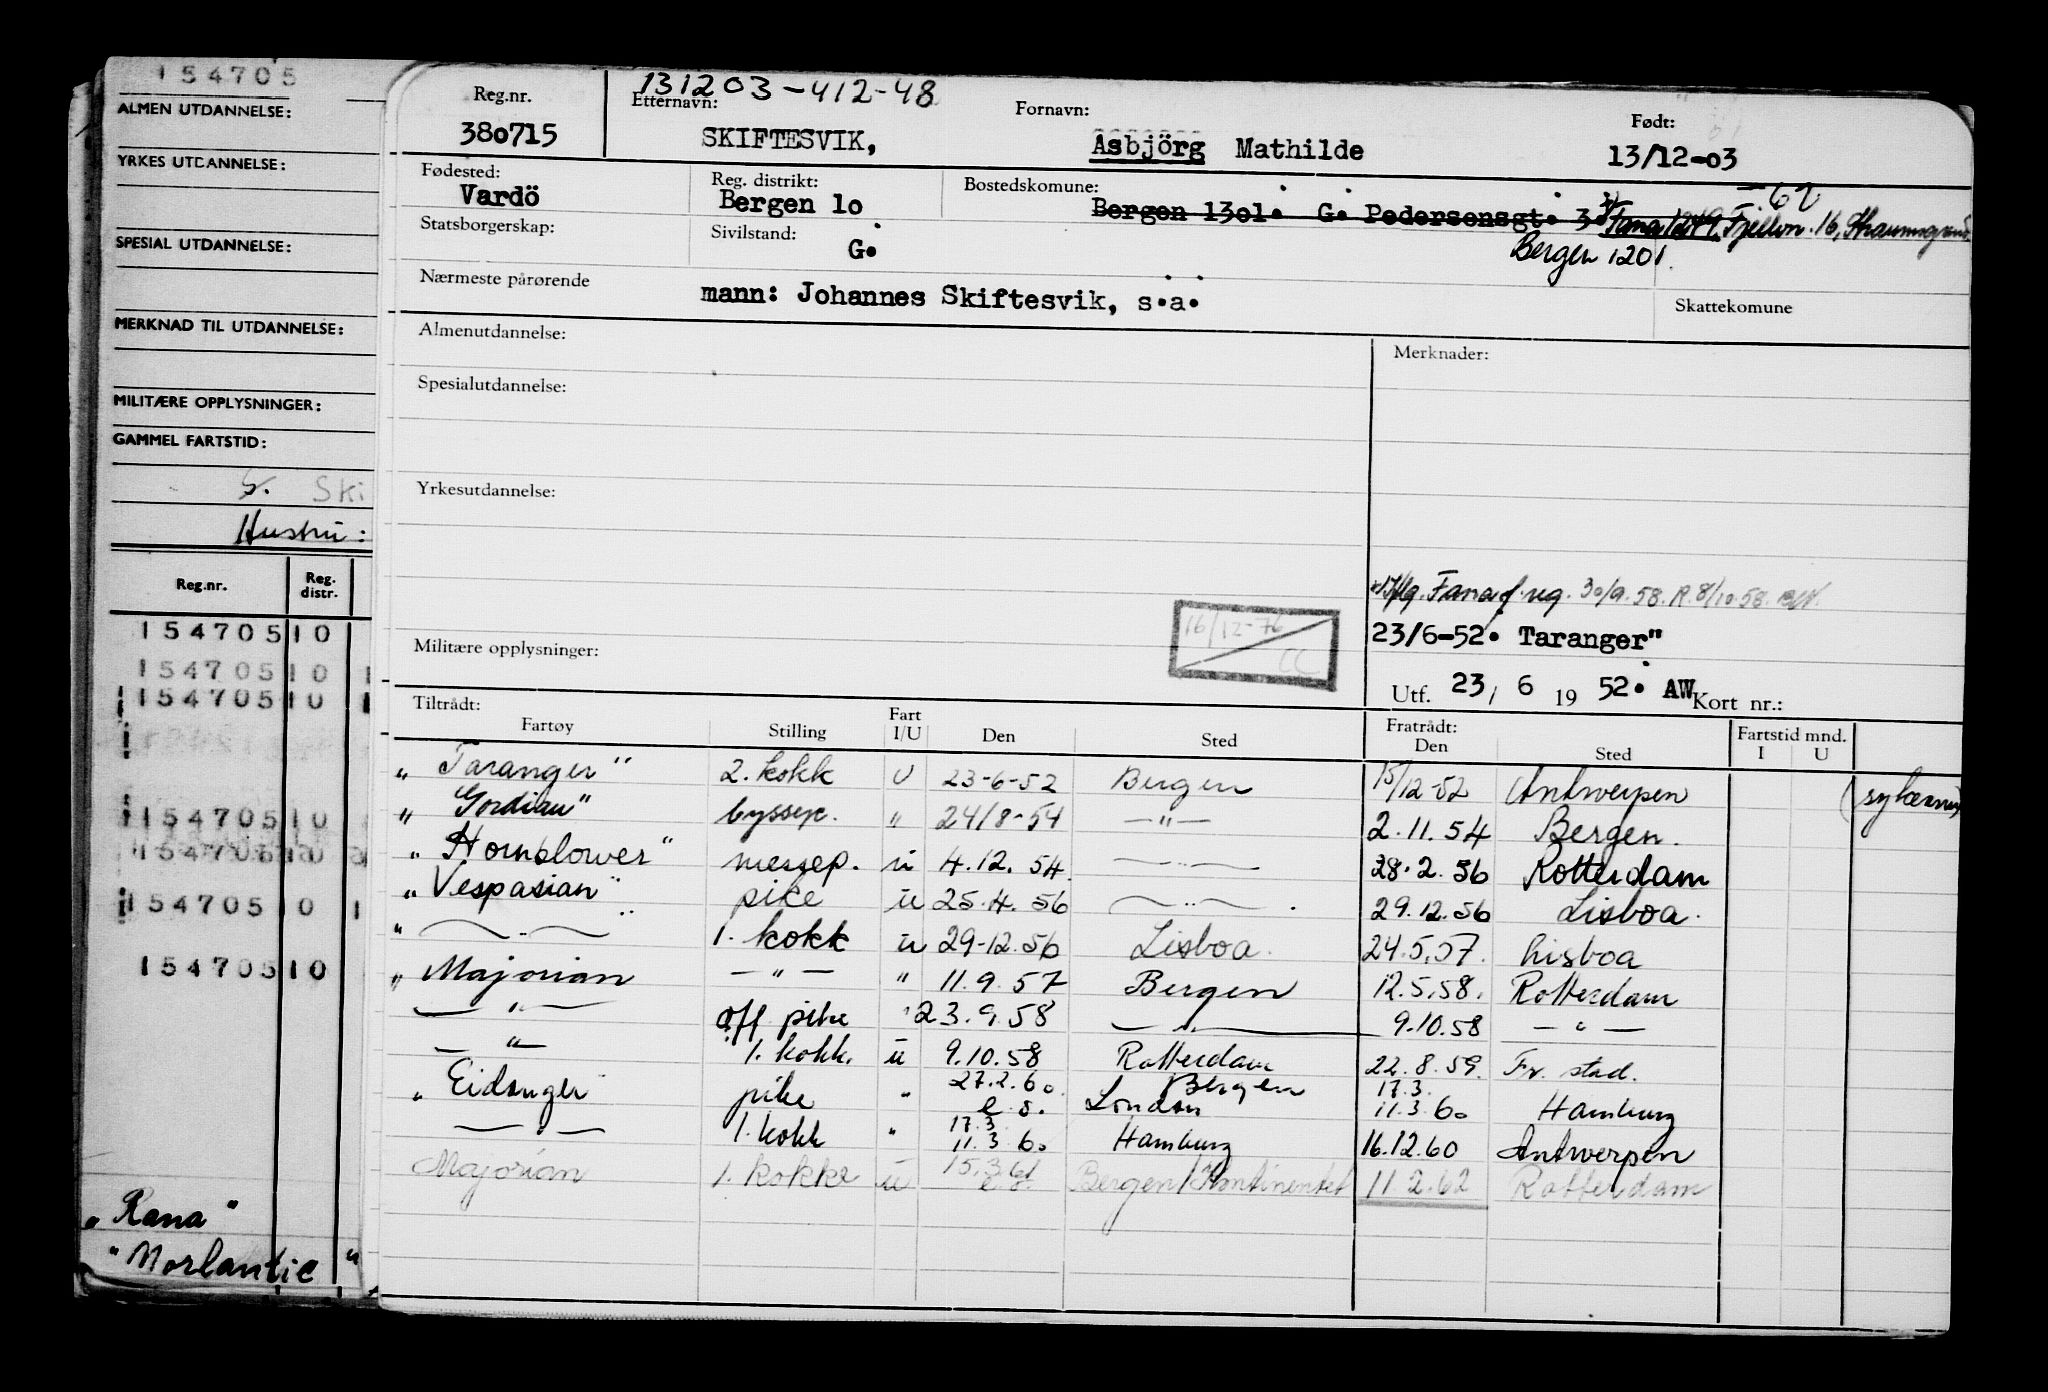 154705
ALMEN UTDANNELSE:
YRKES UTDANNELSE:
SPESIAL UTDANNELSE:
MERKNAD TIL UTDANNELSE:
MILITÆRE OPPLYSNINGER:
GAMMEL FARTSTID:
G. Ski
Hustru:
Reg.nr. Reg. distr.
154705 10
154705 10 1
154705 10
154705 10
154705 10
154705 10 1
154705 10
„Rana"
"Norlantic"
131203-412-48
Reg.nr. Etternavn: Fornavn: Født:
380715 SKIFTESVIK, Asbjörg Mathilde 13/12-03
Fødested: Reg. distrikt: Bostedskomune:
Vardö Bergen 1o Bergen 13o1. G. Pedersensgt. 3 Fana 1249. Fjellvn. 16,
-62
Bergen 1201.
Statsborgerskap: Sivilstand:
G.
Nærmeste pårørende mann: Johannes Skiftesvik, s.a. Skattekomune
Almenutdannelse: Merknader:
Spesialutdannelse:
Yrkesutdannelse:
Fana f. reg. 30/9.58. R. 8/10.58.
16/12-76
CC
23/6-52. Taranger"
Militære opplysninger:
Utf. 23/ 6 19 52. AW Kort nr.:
Tiltrådt: Fratrådt: Fartstid mnd.
Fartøy Stilling Fart I/U Den Sted Den Sted I U
„Taranger" 2. kokk U 23-6-52 Bergen 15/12-52 Antwerpen
„Gordian" byssep. " 24/8-54 —"— 2.11.54 Bergen.
„Hornblower" messep. u 4.12.54. —"— 28.2.56 Rotterdam
„Vespasian" pike u 25.4.56 —"—. 29.12.56 Lisboa.
„ —"— 1. kokk u 29-12.56 Lisboa. 24.5.57. Lisboa
„Majorian —"— " 11.9.57 Bergen 12.5.58. Rotterdam
—"— off. pike " 23.9.58 —"— 9.10.58 —"—
—"— 1. kokk. u 9.10.58 Rotterdam 22.8.59. Fr. stad.
„Eidanger" pike " 27.2.60 e.o. Bergen London 17.3. 11.3.60 Hamburg
—"— 1. kokk " 17.3 11.3.60 Hamburg 16.12.60 Antwerpen
Majorian 1. kokke u 15.3.61 e.o. Bergen/Kontinentet 11.2.62 Rotterdam